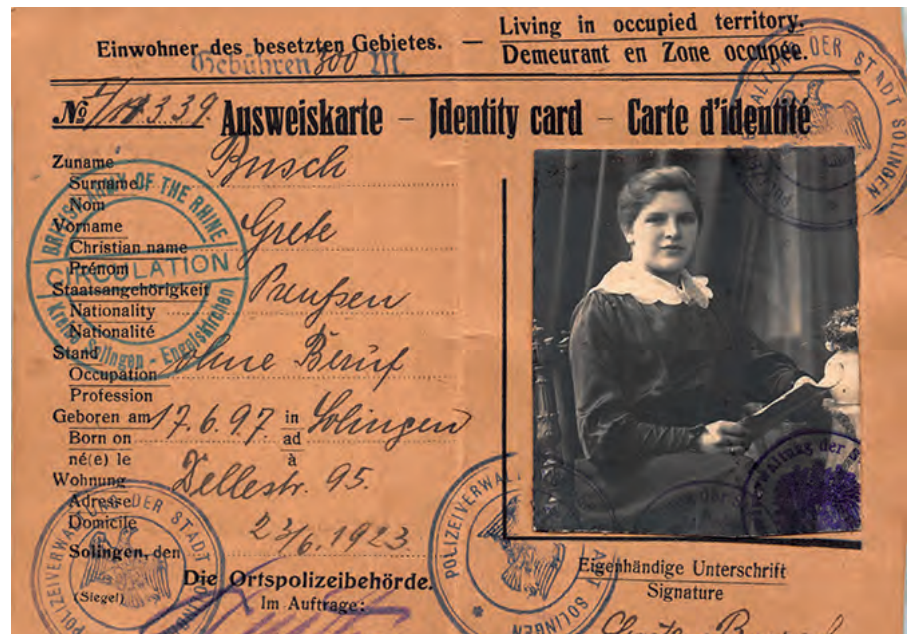 Einwohner des besetzten Gebietes. — Living in occupied territory.
Demeurant en Zone occupée.
Gebühren 300 M
No I/14339. Ausweiskarte – Identity card – Carte d'identité
Zuname Busch
Surname
Nom
Vorname Grete
Christian name
Prénom
Staatsangehörigkeit Preußen
Nationality
Nationalité
Stand ohne Beruf
Occupation
Profession
Geboren am 17.6.97 in Solingen
Born on ad
né(e) le à
Wohnung Dellestr. 95.
Adresse
Domicile
Solingen, den 23/6.1923
Die Ortspolizeibehörde.
(Siegel) Im Auftrage:
Eigenhändige Unterschrift
Signature
BRITISH ARMY OF THE RHINE
CIRCULATION
Kreis Solingen - Engelskirchen
POLIZEIVERWALTUNG DER STADT SOLINGEN
POLIZEIVERWALTUNG DER STADT SOLINGEN
POLIZEIVERWALTUNG DER STADT SOLINGEN